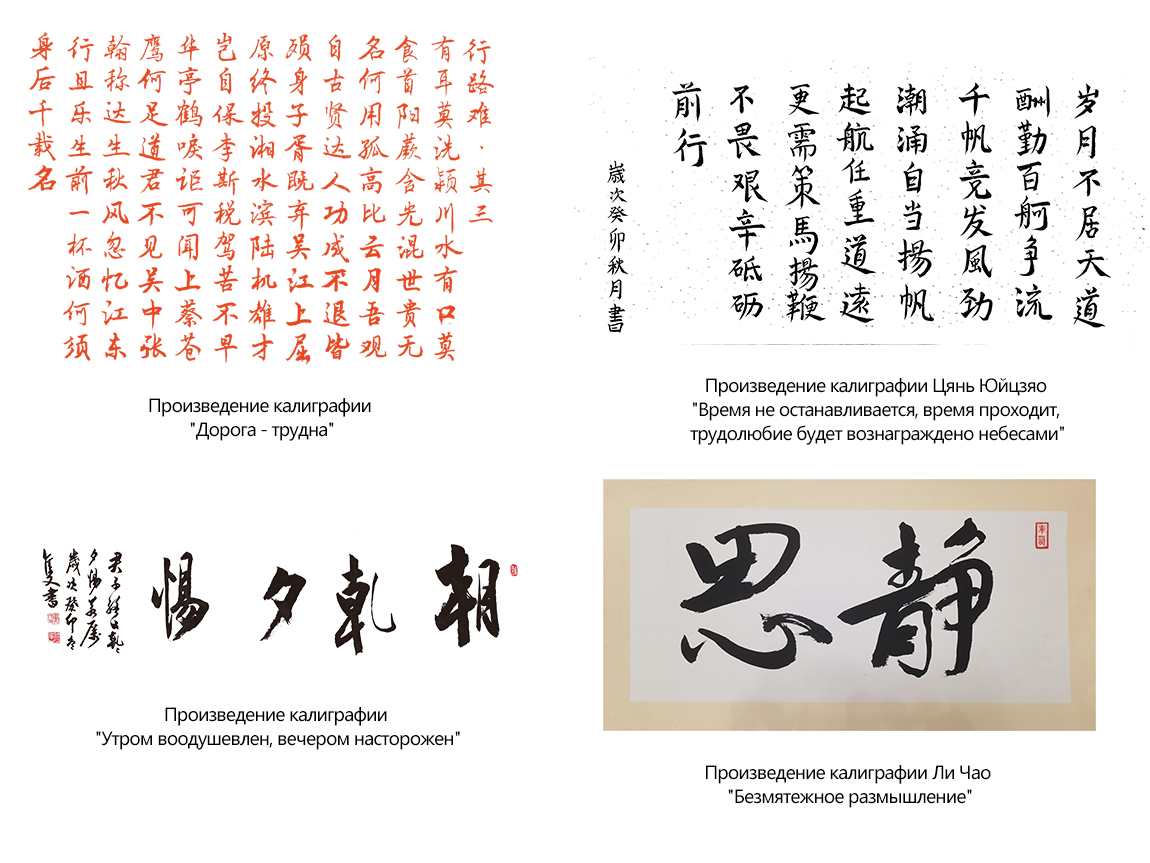 行路难·其三
有耳莫洗颍川水有口莫
食首阳蕨含光混世贵无
名何用孤高比云月吾观
自古贤达人功成不退皆
殒身子胥既弃吴江上屈
原终投湘水滨陆机雄才
岂自保李斯税驾苦不早
华亭鹤唳讵可闻上蔡苍
鹰何足道君不见吴中张
翰称达生秋风忽忆江东
行且乐生前一杯酒何须
身后千载名
Произведение калиграфии
"Дорога - трудна"
岁月不居天道
酬勤百舸争流
千帆竞发風劲
潮涌自当揚帆
起航任重道遠
更需策馬揚鞭
不畏艰辛砥砺
前行
歲次癸卯秋月書
Произведение калиграфии Цянь Юйцзяо
"Время не останавливается, время проходит,
трудолюбие будет вознаграждено небесами"
朝乾夕惕
君子终日乾乾
夕惕若厲
歲次癸卯冬
書
Произведение калиграфии
"Утром воодушевлен, вечером насторожен"
静思
Произведение калиграфии Ли Чао
"Безмятежное размышление"